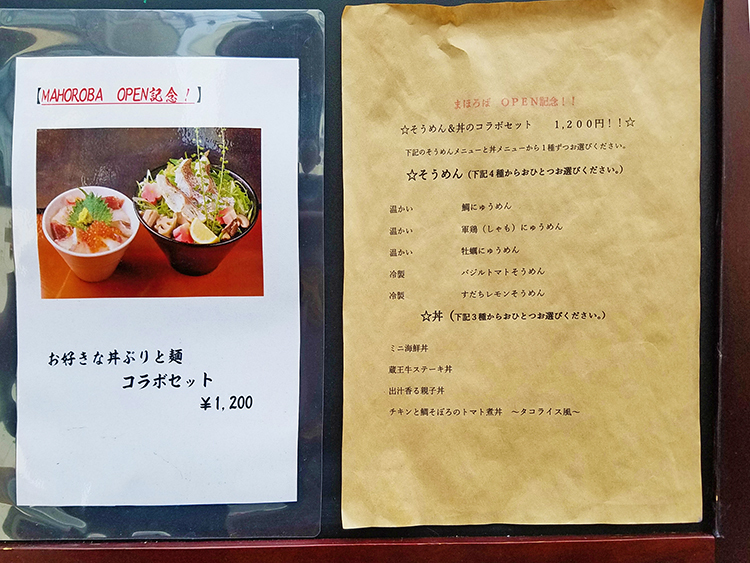 【MAHOROBA OPEN記念！】
お好きな丼ぶりと麺
コラボセット
￥1,200
まほろば OPEN記念！！
☆そうめん＆丼のコラボセット 1,200円！！☆
下記のそうめんメニューと丼メニューから１種ずつお選びください。
☆そうめん（下記４種からおひとつお選びください。）
温かい 鯛にゅうめん
温かい 軍鶏（しゃも）にゅうめん
温かい 牡蠣にゅうめん
冷製 バジルトマトそうめん
冷製 すだちレモンそうめん
☆丼（下記３種からおひとつお選びください。）
ミニ海鮮丼
蔵王牛ステーキ丼
出汁香る親子丼
チキンと鯛そぼろのトマト煮丼 ～タコライス風～